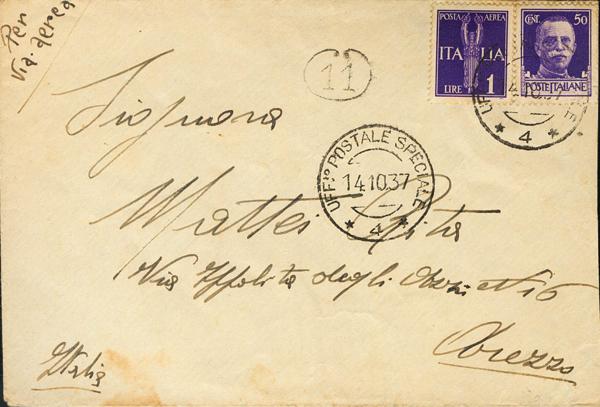 Per
Via aerea
POSTA AEREA
ITALIA
LIRE 1
CENT. 50
POSTE ITALIANE
11
UFF. POSTALE SPECIALE
14.10.37
* 4 *
UFF
14.10.37
* 4 *
Signora
Mattei Rita
Via Ippolita degli
Arezzo
Italia